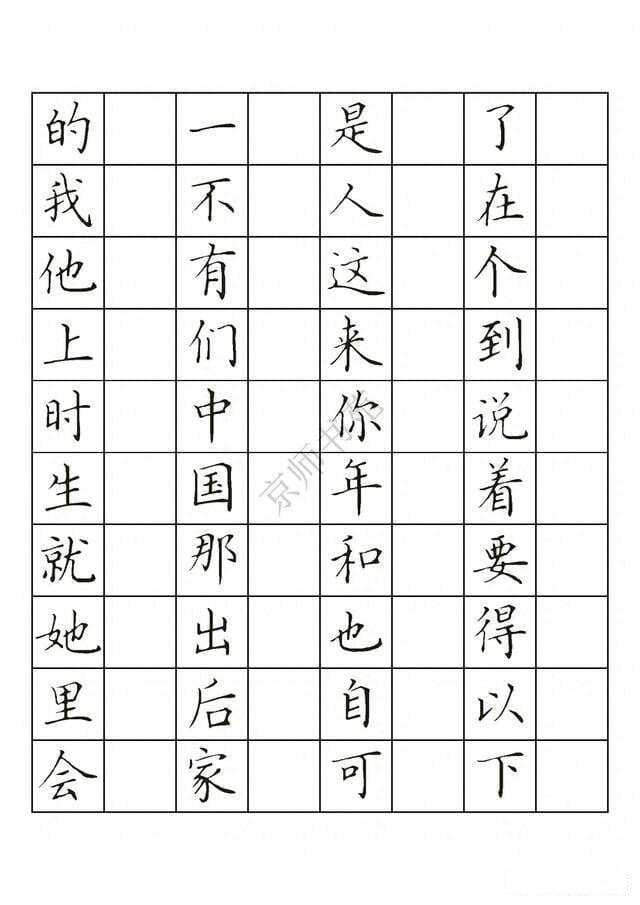 的 一 是 了
我 不 人 在
他 有 这 个
上 们 来 到
时 中 你 说
生 国 年 着
就 那 和 要
她 出 也 得
里 后 自 以
会 家 可 下
京师书苑